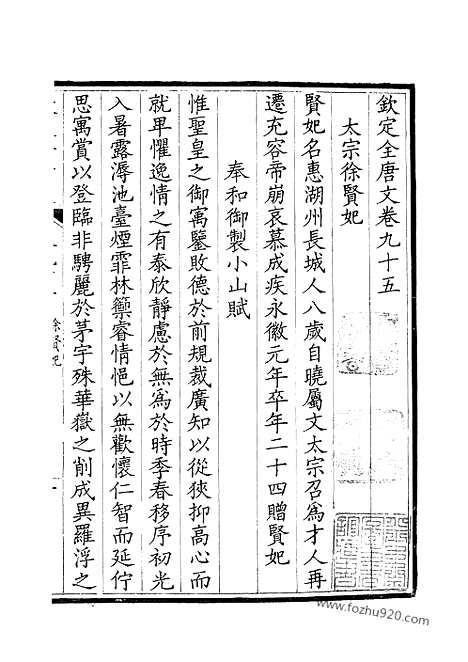 欽定全唐文卷九十五
太宗徐賢妃
賢妃名惠湖州長城人八歲自曉屬文太宗召爲才人再
遷充容帝崩哀慕成疾永徽元年卒年二十四贈賢妃
奉和御製小山賦
惟聖皇之御寓鑒敗德於前規裁廣知以從狹抑高心而
就卑懼逸情之有泰欣靜慮於無爲於時季春移序初光
入暑露溽池臺煙霏林籞睿情悒以無歡懷仁智而延佇
思寓賞以登臨非騁麗於茅宇殊華嶽之削成異羅浮之
徐賢妃
一
www.fozhu920.com